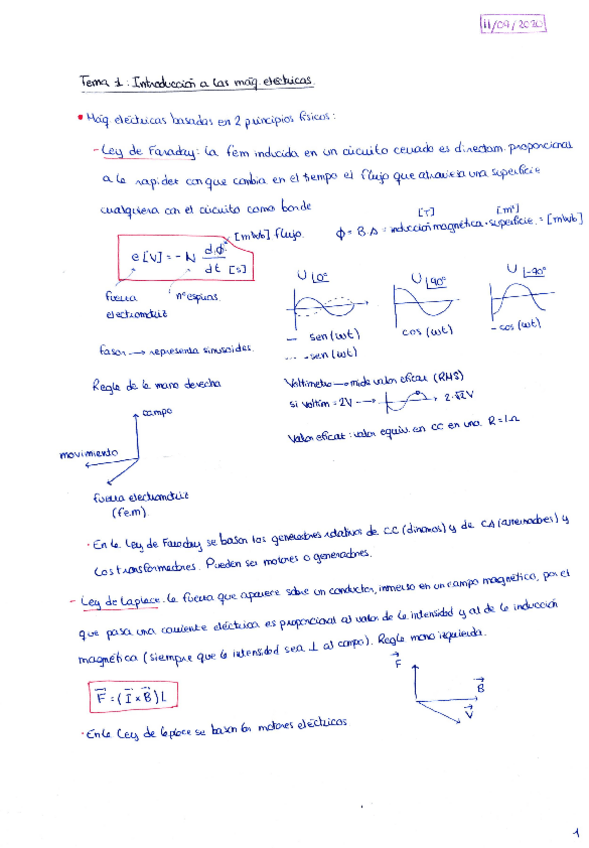 11/09/2020
Tema 1: Introducción a las máq eléctricas.
• Máq eléctricas basadas en 2 principios físicos:
- Ley de Faraday: la fem inducida en un circuito cerrado es directam. proporcional
a la rapidez con que cambia en el tiempo el flujo que atraviesa una superficie
cualquiera con el circuito como borde
[T] [m²]
[mWb] flujo. ϕ = B·A = inducción magnética · superficie. = [mWb]
e[V] = - N dϕ/dt [s]
fuerza electromotriz
nº espiras.
U∠0° U∠90° U∠-90°
— sen(ωt) cos(ωt) - cos(ωt)
--- -sen(ωt)
fasor → representa sinusoides.
Regla de la mano derecha
Voltímetro → mide valor eficaz (RMS)
si voltím = 2V → 2·√2 V
Valor eficaz: valor equiv. en CC en una R = 1Ω
campo
movimiento
fuerza electromotriz
(fem)
· En la Ley de Faraday se basan los generadores rotativos de CC (dinamos) y de CA (alternadores) y
los transformadores. Pueden ser motores o generadores.
- Ley de Laplace: la fuerza que aparece sobre un conductor, inmerso en un campo magnético, por el
que pasa una corriente eléctrica es proporcional al valor de la intensidad y al de la inducción
magnética (siempre que la intensidad sea ⊥ al campo). Regla mano izquierda.
F⃗ = (I⃗ × B⃗) L
F⃗
B⃗
V⃗
· En la Ley de laplace se basan los motores eléctricos
1